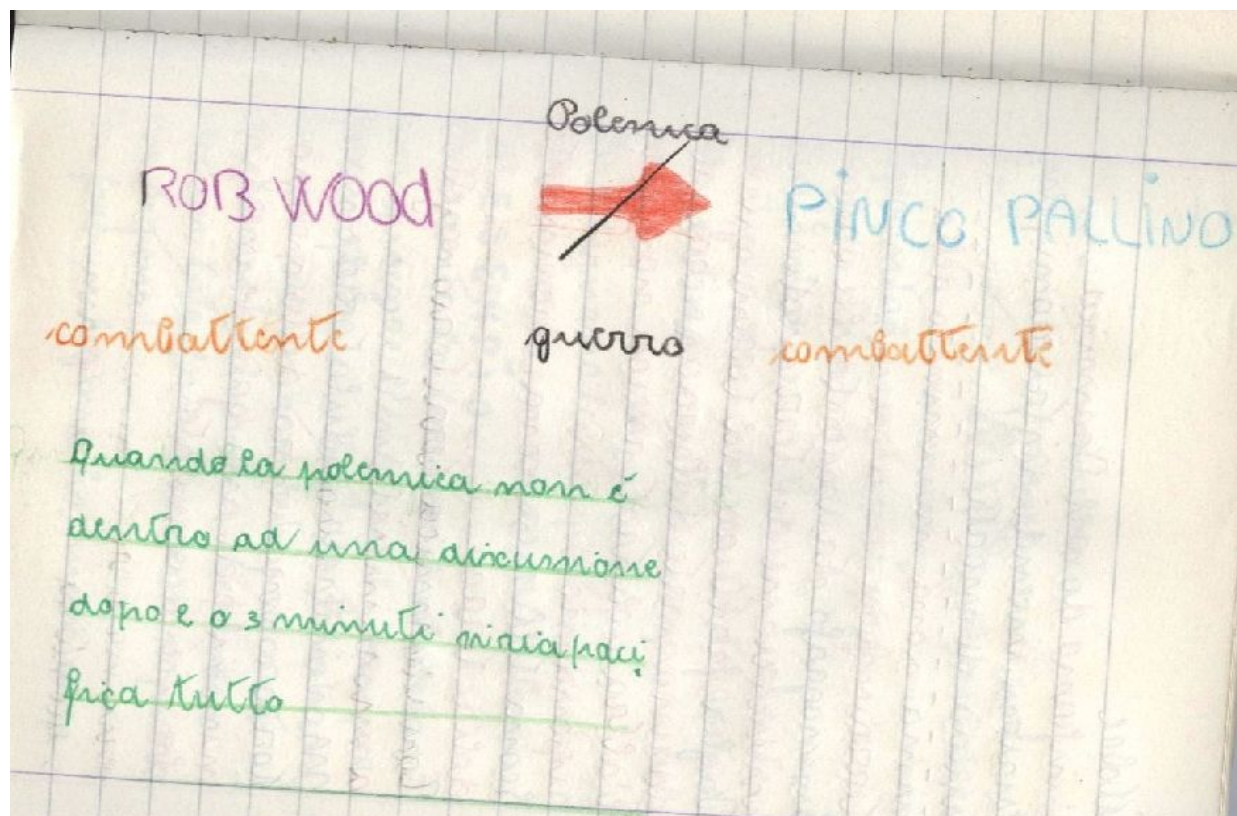 Polemica
ROB WOOD PINCO PALLINO
combattente guerra combattente
Quando la polemica non è
dentro ad una discussione
dopo 2 o 3 minuti si riapaci
fica tutto